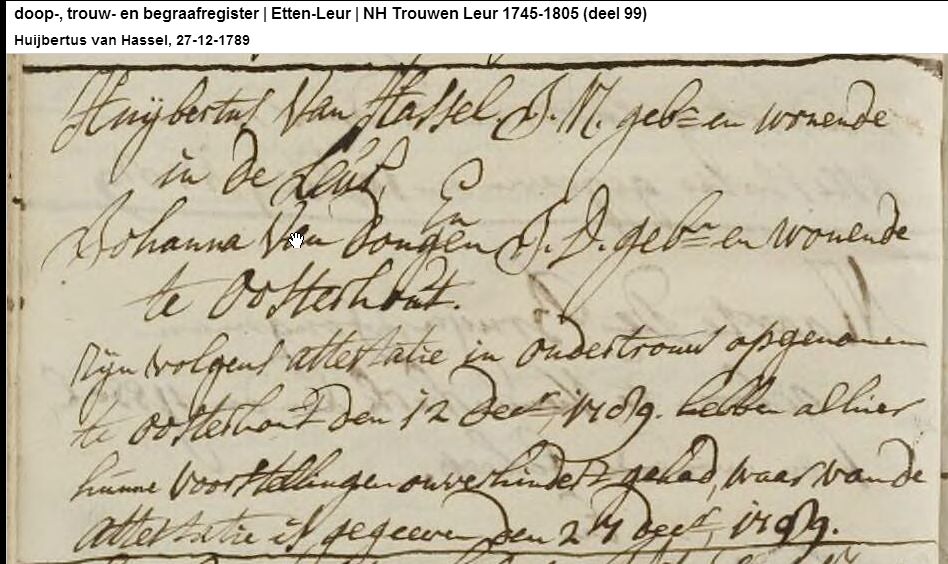 doop-, trouw- en begraafregister | Etten-Leur | NH Trouwen Leur 1745-1805 (deel 99)
Huijbertus van Hassel, 27-12-1789
Huijbertus Van Hassel. J. M. geb= en wonende
in de Leur,
En
Johanna Van Dongen J. D. gebn= en wonende
te Oosterhout.
zijn volgens attestatie in ondertrouw opgenomen
te Oosterhout den 12 Decr 1789. hebben alhier
hunne voorstellingen onverhindert gehad, waar van de
attestatie is gegeeven den 27 Decr 1789.